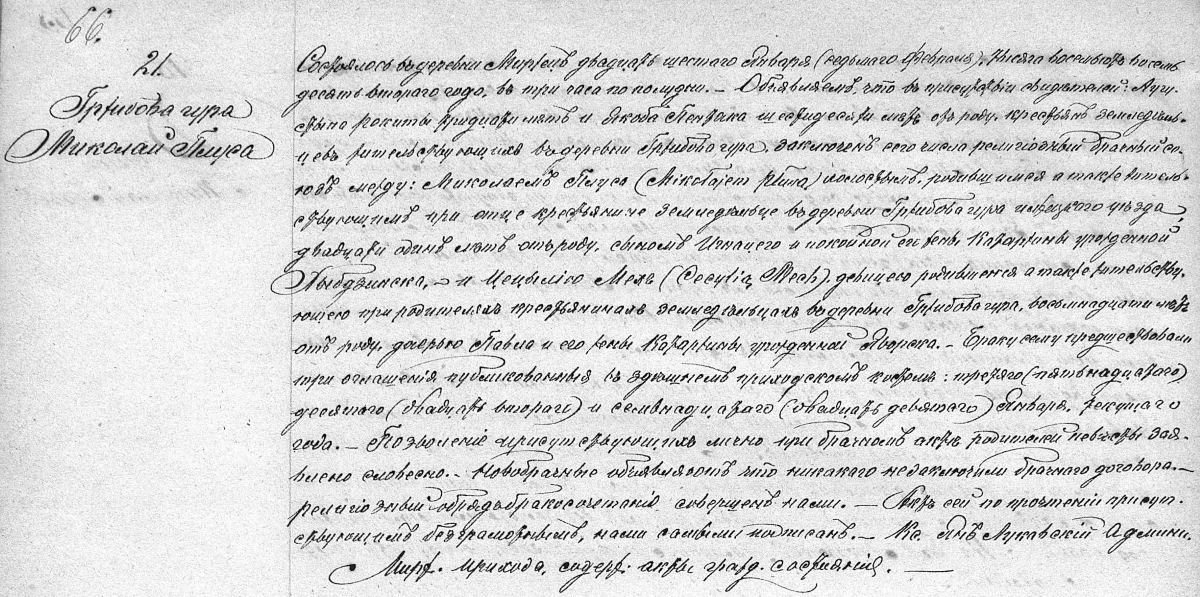 66.
21.
Гржибова гура
Миколай Плуса
Состоялось въ деревни Миржецъ двадцать шестого Января (седьмаго Февраля), тысяча восемьсотъ восемь
десятъ втораго года, въ три часа по полудни. — Объявляемъ, что въ присутствіи свидѣтелей: Авгу-
стына Рокиты тридцати лѣтъ и Якоба шестидесяти лѣтъ отъ роду, крестьянъ земледѣль-
цевъ жительствующихъ въ деревни Гржибова гура, заключенъ сего числа религіозный брачный со-
юзъ между: Миколаемъ Плуса (Mikołajem Plusa) холостымъ, родившимся а также житель-
ствующимъ при отце крестьянине земледѣльце въ деревни Гржибова гура Илжецкаго уѣзда,
двадцати одинъ лѣтъ отъ роду, сыномъ Игнацего и покойной его жены Катаржины урожденной
Хыбдзинска, — и Цецылію Мехъ (Cecylią Mech), девицею родившеюся а также жительству-
ющею при родителяхъ крестьянинахъ земледѣльцахъ въ деревни Гржибова гура, восьмнадцати лѣтъ
отъ роду, дочерью Павла и его жены Катаржины урожденной Яворска. — Браку сему предшествовали
три оглашенія публикованныя въ здѣшнемъ приходскомъ костелѣ: третяго (пятьнадцатаго)
десятого (двадцать втораго) и семьнадцатаго (двадцать девятаго) Января, текущаго
года. — Позволеніе присутствующихъ лично при брачномъ актѣ родителей невѣсты зая-
влено словесно. — Новобрачные объявляютъ что никакаго незаключили брачнаго договора. —
религіозный обрядъ бракосочетанія совершенъ нами. — Актъ сей по прочтеніи присут-
ствующимъ безграмотнымъ, нами самыми подписанъ. — Кс. Янъ Луковскій Админи.
Мирж. прихода, содерж. акты гражд. состоянія. —